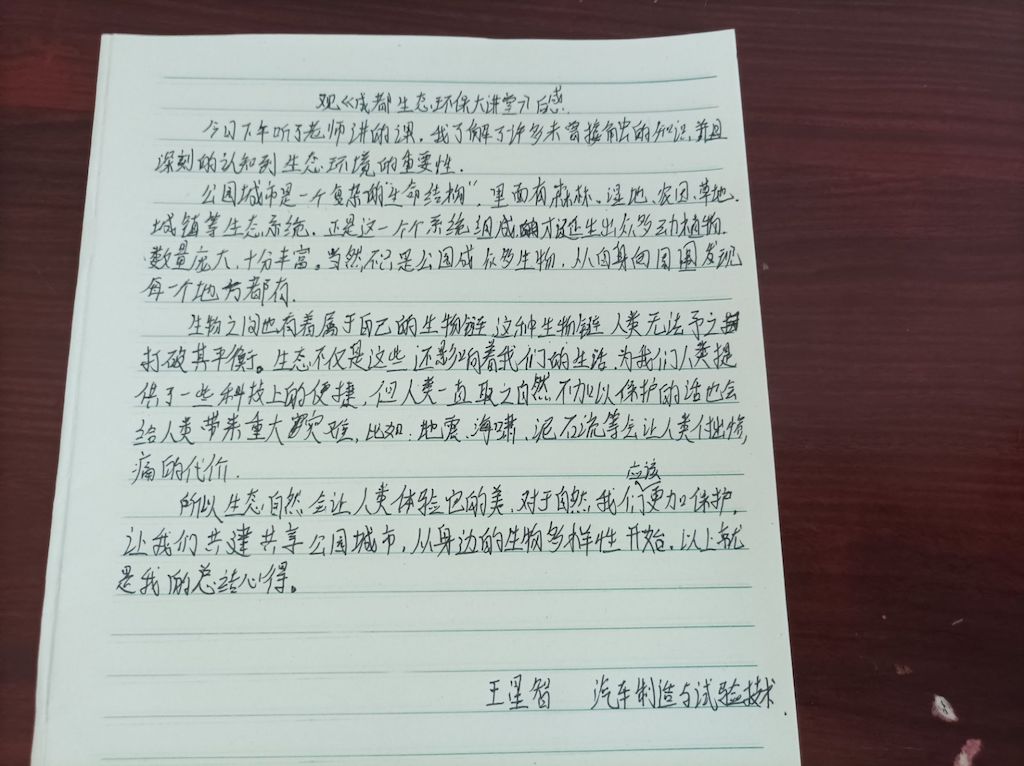 观《成都生态环保大讲堂》后感
今日下午听了老师讲的课，我了解了许多未曾接触的知识，并且
深刻的认知到生态环境的重要性.
公园城市是一个复杂的"生命结构"，里面有森林、湿地、农田、草地、
城镇等生态系统，还是这一个个系统组成才延生出众多动植物.
数量庞大，十分丰富。当然不只是公园成众多生物，从自身向周围发现
每一个地方都有.
生物之间也有着属于自己的生物链，这种生物链人类无法予之
打破其平衡。生态不仅是这些还影响着我们的生活，为我们人类提
供了一些科技上的便捷，但人类一直取之自然，不加以保护的话也会
给人类带来重大灾难，比如：地震、海啸、泥石流等会让人类付出惨
痛的代价.
所以生态自然会让人类体验它的美，对于自然，我们应该更加保护，
让我们共建共享公园城市，从身边的生物多样性开始，以上就
是我的总结心得。
王星智 汽车制造与试验技术.